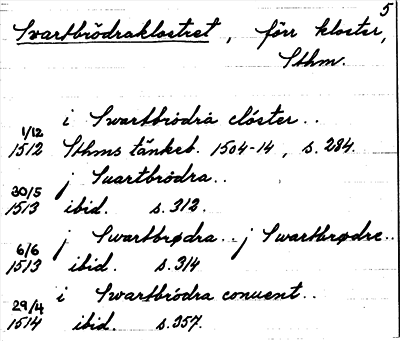 5
Svartbrödraklostret, förr kloster,
Sthm.
i Swartbrödra clóster..
1/12
1512 Sthms tänkeb. 1504-14, s. 284.
j Suartbrödra..
30/5
1513 ibid. s. 312.
j Swartbrødra.. j Swartbrødre..
6/6
1513 ibid. s. 314
i Swartbródra conuent..
29/4
1514 ibid. s. 357.